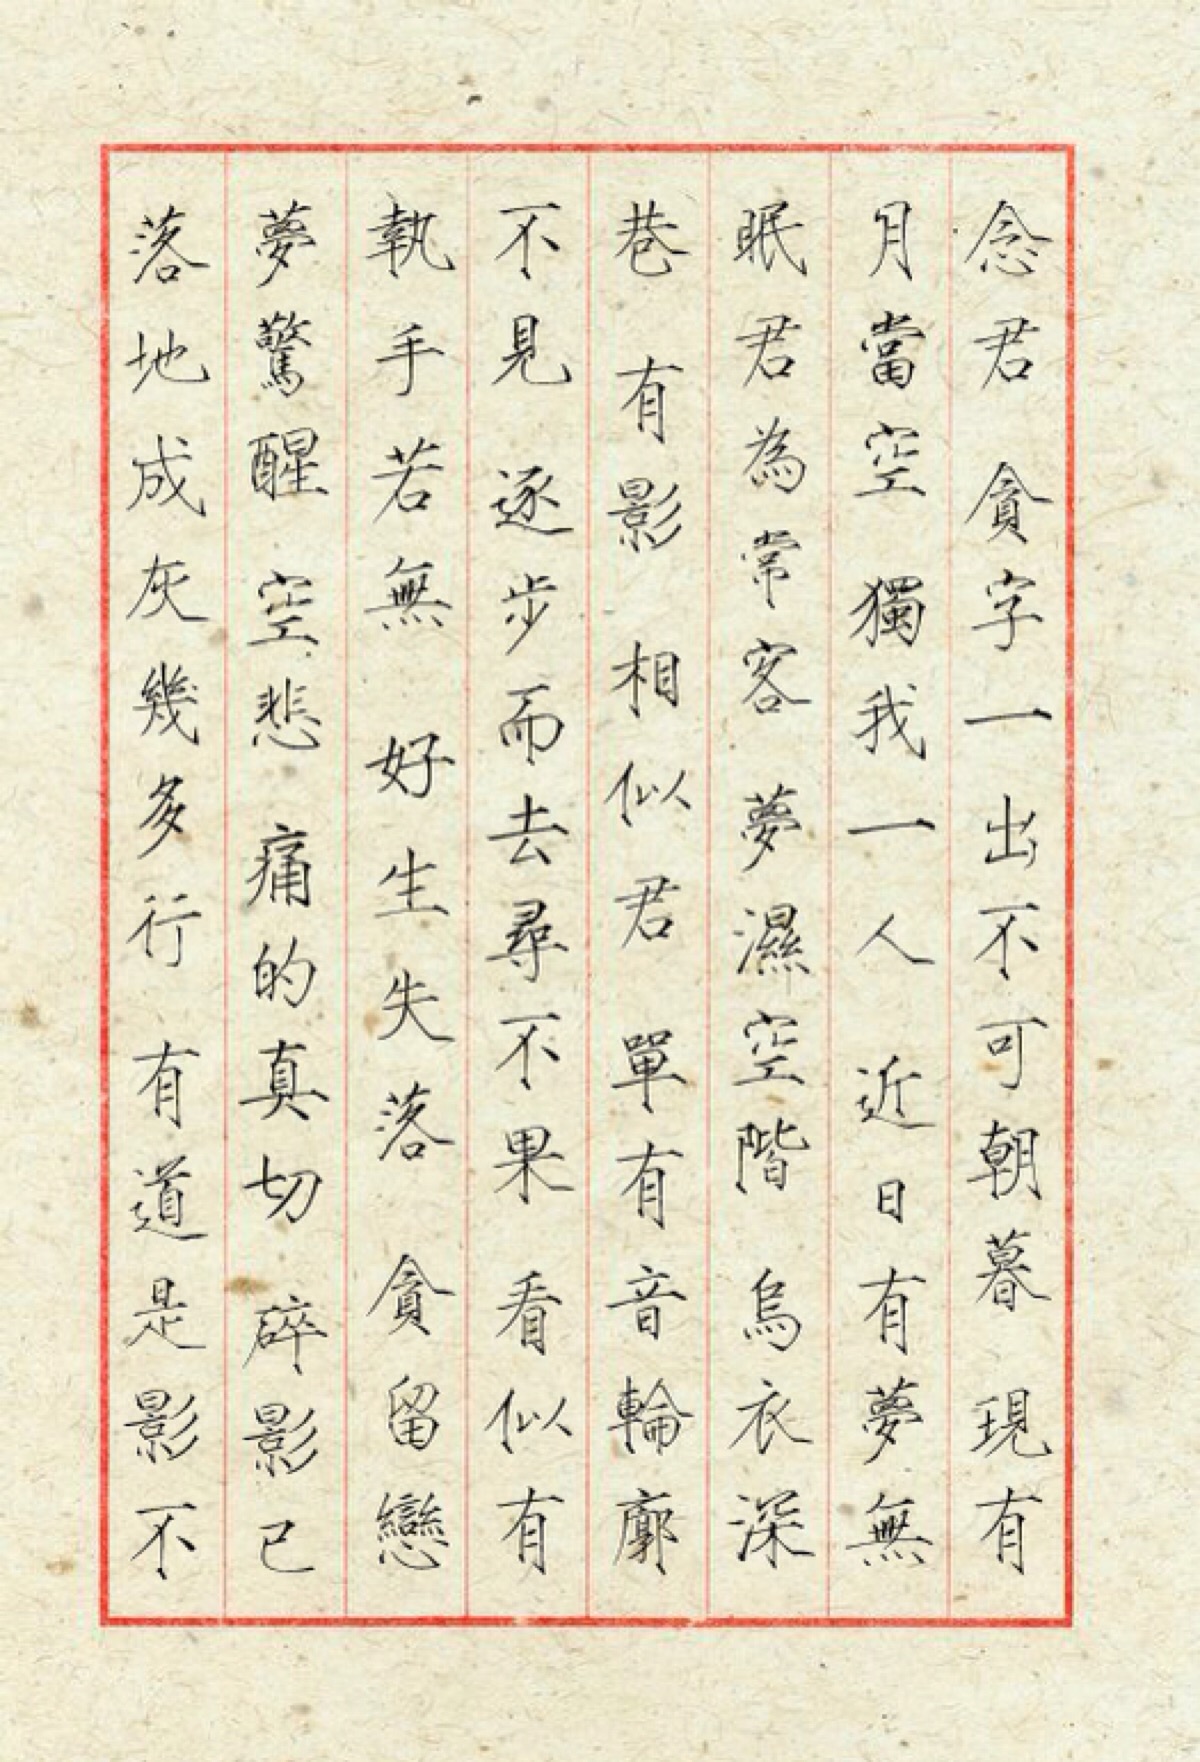 念君 貪字一出不可朝暮 現有
月當空 獨我一人 近日有夢無
眠君為常客 夢濕空階 烏衣深
巷 有影 相似君 單有音輪廓
不見 逐步而去尋不果 看似有
執手若無 好生失落 貪留戀
夢驚醒 空悲 痛的真切 碎影已
落地成灰幾多行 有道是影不